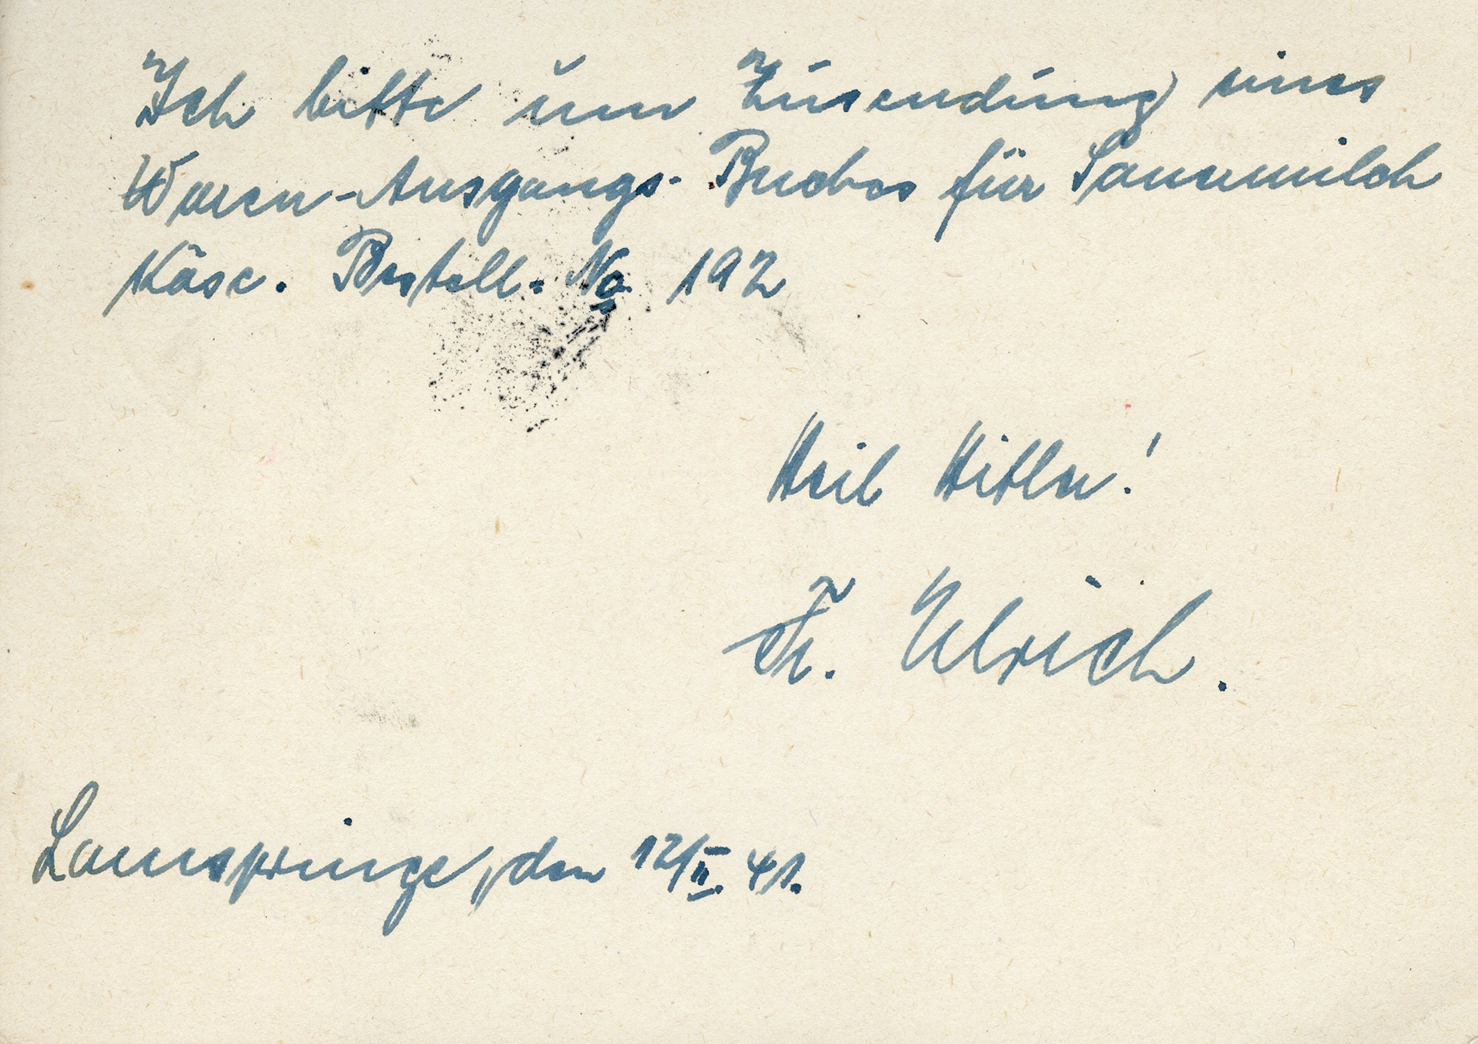 Ich bitte um Zusendung eines
Waren-Ausgangs-Buches für Sauermilch
Käse. Bestell-No 192
Heil Hitler!
Fr. Ulrich.
Lamspringe, den 12/II. 41.